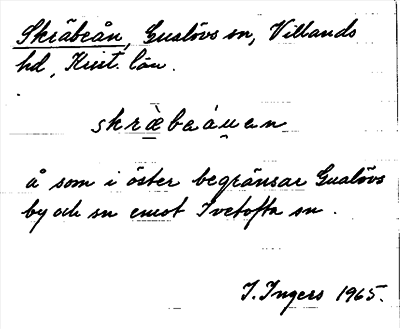 Skräbeån, Gualövs sn, Villands
hd, Krist. län.
skræ̀beáu̯en
å som i öster begränsar Gualövs
by och sn emot Ivetofta sn.
I. Ingers 1965.